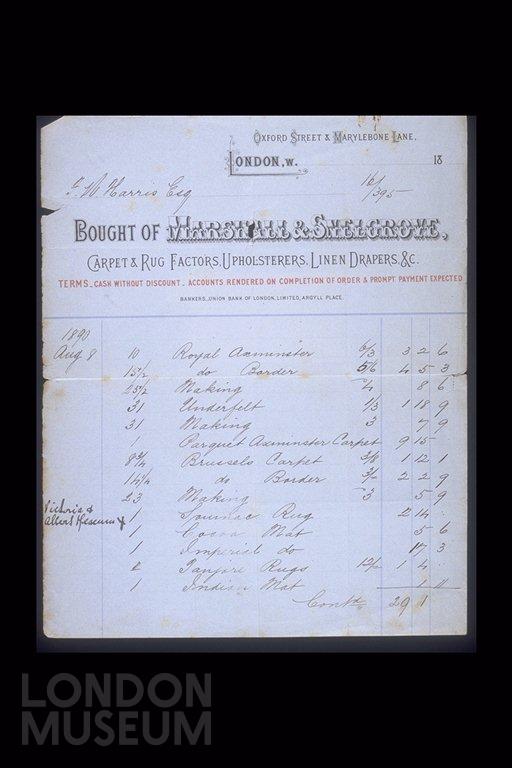 Oxford Street & Marylebone Lane.
London, W. 18
F. W. Harris Esq 16/1/395
Bought of Marshall & Snelgrove,
Carpet & Rug Factors, Upholsterers, Linen Drapers, &c.
TERMS_CASH WITHOUT DISCOUNT. ACCOUNTS RENDERED ON COMPLETION OF ORDER & PROMPT PAYMENT EXPECTED
BANKERS_UNION BANK OF LONDON, LIMITED, ARGYLL PLACE.
1890
Aug 8 10 Royal Axminster 6/3 3 2 6
15 1/2 do Border 5/6 4 5 3
25 1/2 Making 8 6
31 Underfelt 1/3 1 18 9
31 Making 3 7 9
1 Parquet Axminster Carpet 9 15
8 3/4 Brussels Carpet 3/8 1 12 1
14 1/4 do Border 3/- 2 2 9
23 Making 3 5 9
Victoria &
Albert Museum
1 Soumac Rug 2 14
1 Cocoa Mat 5 6
1 Imperial do 17 3
2 Tanjore Rugs 12/- 1 4
1 Indian Mat 1 11
Contd 29 1
LONDON
MUSEUM